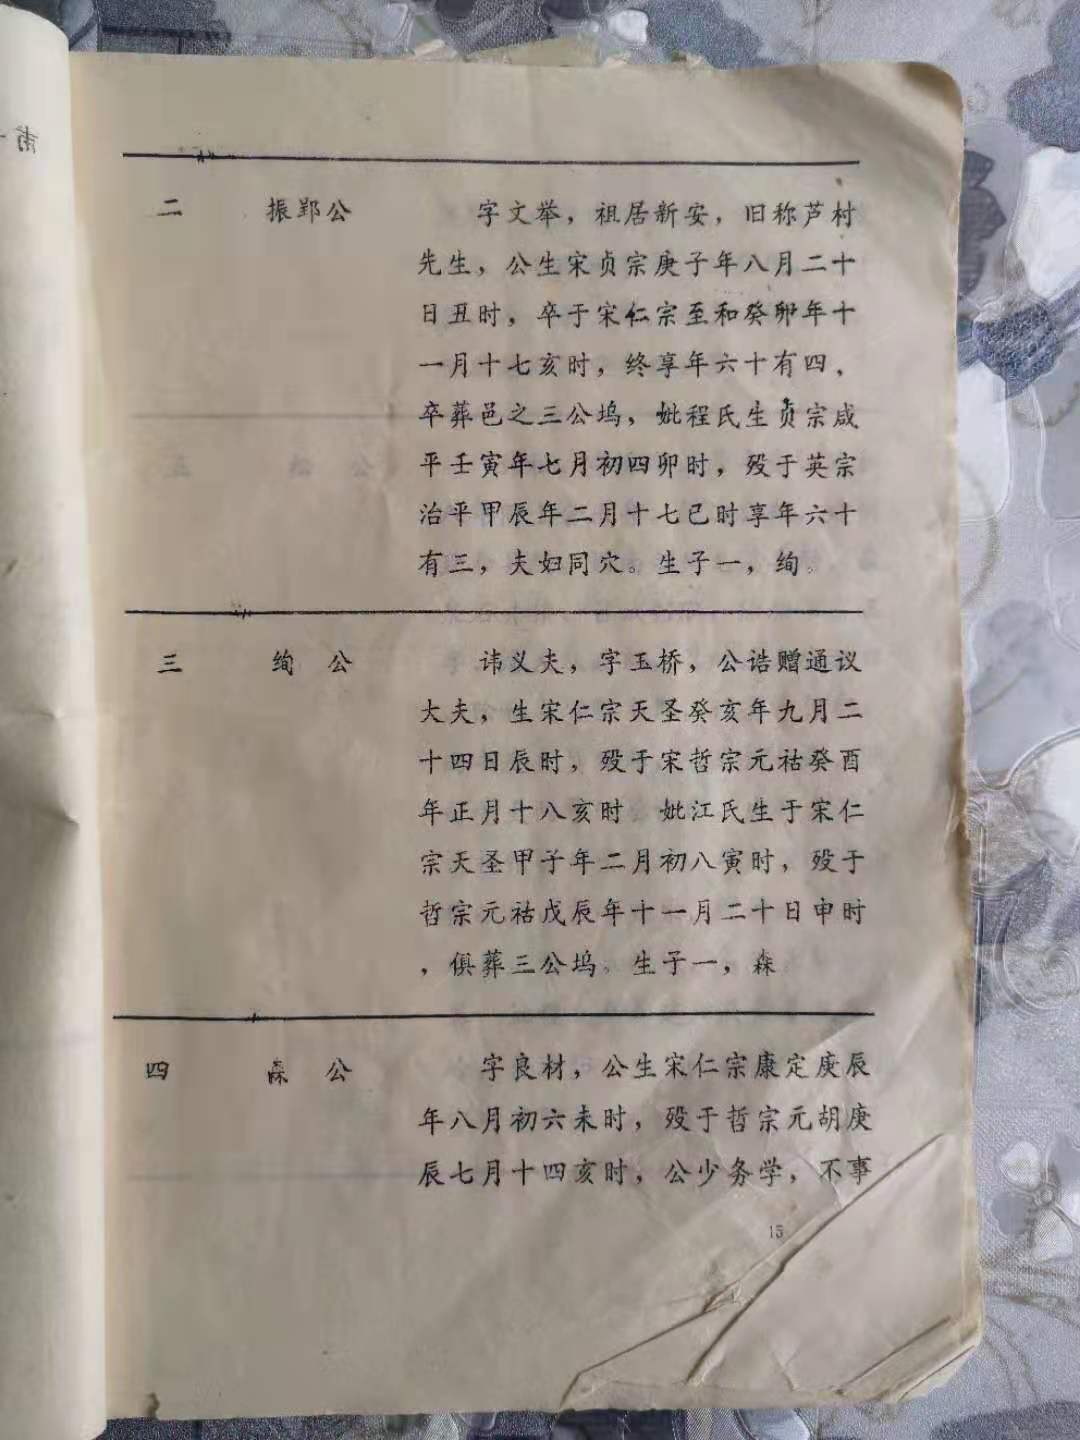 二 振郢公 字文举，祖居新安，旧称芦村
先生，公生宋贞宗庚子年八月二十
日丑时，卒于宋仁宗至和癸卯年十
一月十七亥时，终享年六十有四、
卒葬邑之三公坞，妣程氏生贞宗咸
平壬寅年七月初四卯时，殁于英宗
治平甲辰年二月十七巳时享年六十
有三，夫妇同穴。生子一，绚。
三 绚公 讳义夫，字玉桥，公诰赠通议
大夫，生宋仁宗天圣癸亥年九月二
十四日辰时，殁于宋哲宗元祜癸酉
年正月十八亥时 妣江氏生于宋仁
宗天圣甲子年二月初八寅时，殁于
哲宗元祜戊辰年十一月二十日申时
，俱葬三公坞。生子一，森
四 森公 字良材，公生宋仁宗康定庚辰
年八月初六未时，殁于哲宗元胡庚
辰七月十四亥时，公少务学，不事
15